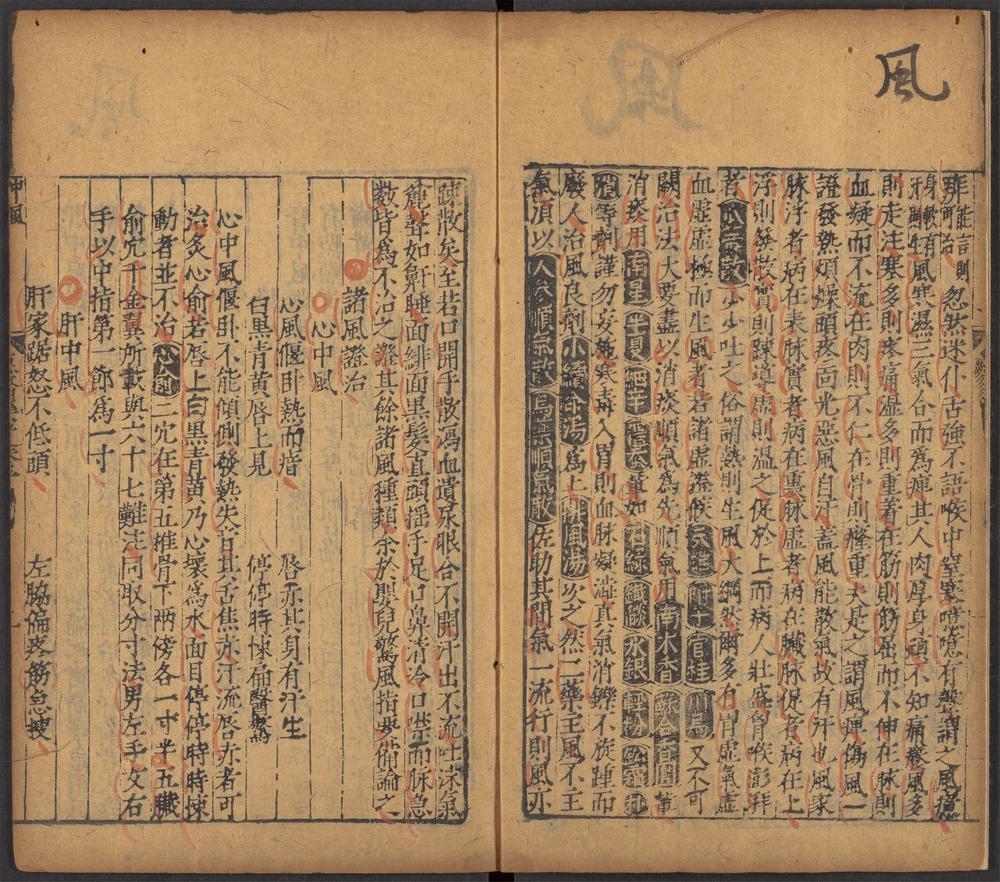 風
忽然迷仆舌強不語喉中窒塞噫噫有聲謂之風癔
身軟有風寒濕三氣合而爲痺其人肉厚身頑不知痛癢風多
則走注寒多則疼痛濕多則重着在筋則筋屈而不伸在脉則
血凝而不流在肉則不仁在骨則癃重夫是之謂風痺傷風一
證發熱煩燥頭疼面光惡風自汗蓋風能散氣故有汗也風家
脉浮者病在表脉實者病在裏脉虚者病在臓脉促者病在上
浮則發散實則踈導虚則温之促於上而病人壯盛胷喉彭拜
者少少吐之俗謂熱則生風大綱然爾多有胃虚氣虚
血虚虚極而生風者若諸虚證候附子官桂川烏又不可
闕治法大要盡以消痰順氣爲先順氣用南木香蘇合香圓輩
消痰用南星半夏細辛輩如水銀輕粉
等劑謹勿妄施寒毒入胃則血脉凝澁真氣消鑠不旋踵而
廢人治風良劑小續命湯爲上排風湯次之然二藥主風不主
氣湏以人參順氣散烏藥順氣散佐助其間氣一流行則風亦
踈散矣至若口開手散瀉血遺尿眼合不開汗出不流吐沫氣
麄聲如鼾睡面緋面黒髮直頭揺手足口鼻清冷口噤而脉急
数皆爲不治之證其餘諸風種類余於嬰兒驚風指要備論之
諸風證治
心中風
心風偃卧熱而瘖 唇亦其身有汗生
白黒青黄唇上見 停停時悚命醫驚
心中風偃卧不能傾側發熱失音其舌焦赤汗流唇赤者可
治灸心俞若唇上白黒青黄乃心壊爲水面目停停時時悚
動者並不治心俞二穴在第五椎骨下兩傍各一寸半五臟
俞穴千金翼所載與六十七難注同取分寸法男左手女右
手以中指第一節爲一寸
肝中風
肝家踞怒不低頭 左脇偏疼筋急搜
中風